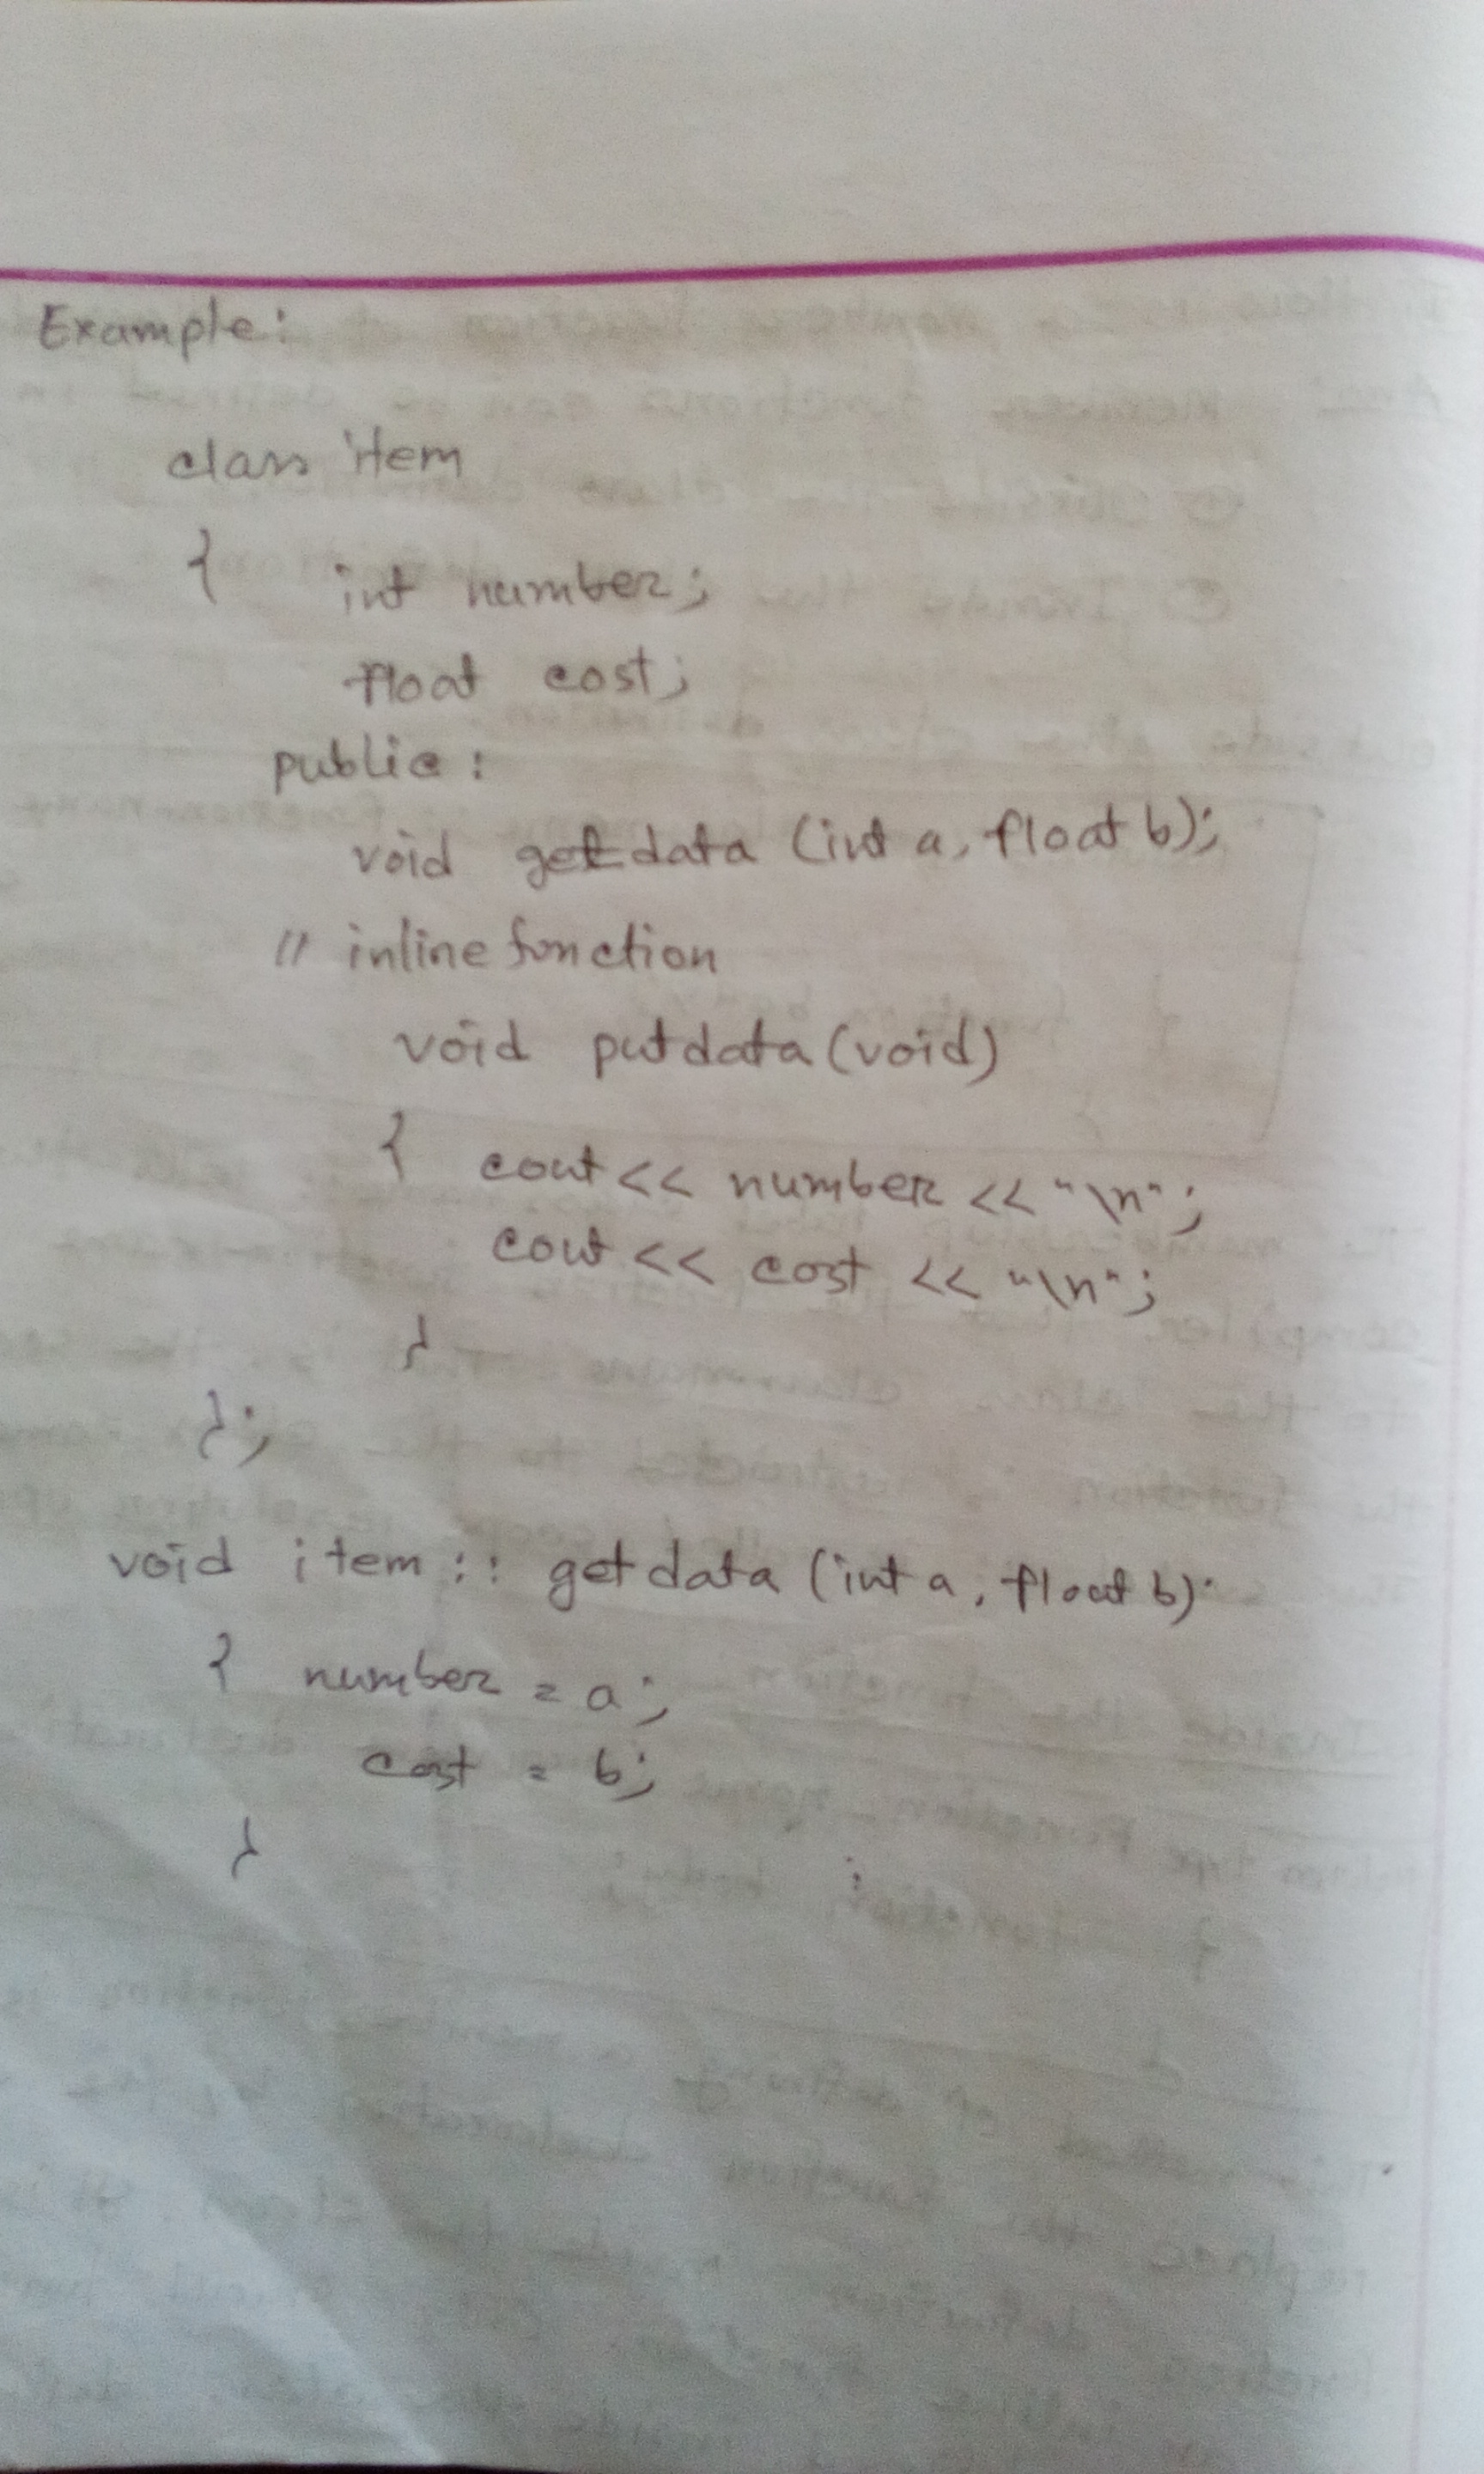 Example:
class item
{ int number;
float cost;
public:
void getdata (int a, float b);
// inline function
void putdata (void)
{ cout << number << "\n";
cout << cost << "\n";
}
};
void item :: getdata (int a, float b)
{ number = a;
cost = b;
}